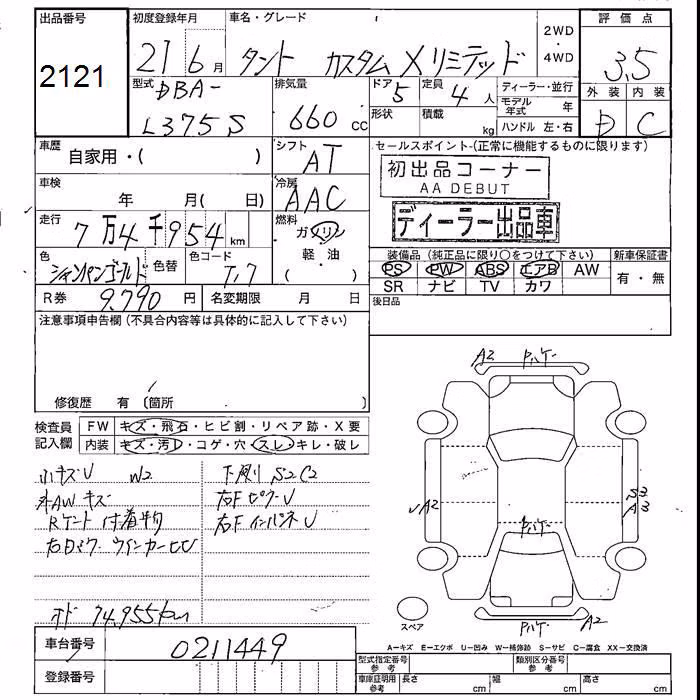 出品番号 初度登録年月 車名・グレード 2WD 評価点
2121 21 6月 タント カスタム Xリミテッド ・4WD 3.5
型式 排気量 ドア 定員 ディーラー・並行 外装 内装
DBA- 5 4人 モデル年式 年 D C
L375S 660cc 形状 積載 kg ハンドル 左・右
車歴 シフト セールスポイント-(正常に機能するものに限ります)
自家用・( ) AT 初出品コーナー
車検 冷房 AA DEBUT
年 月( 日) AAC ディーラー出品車
走行 燃料
7万4千954km ガソリン
色 色コード ・ 装備品(純正品に限り○をつけて下さい) 新車保証書
シャンパンゴールド 色替 T17 軽・油 PS PW ABS エアB AW 有・無
SR ナビ TV カワ
R券 9,790円 名変期限 月 日 後日品
注意事項申告欄(不具合内容等は具体的に記入して下さい)
A2 Pハゲ
修復歴 有(箇所
検査員 FW キズ・飛石・ヒビ割・リペア跡・X要
記入欄 内装 キズ・汚レ・コゲ・穴・スレ・キレ・破レ
小キズU W2 下廻り S2C2
AWキズ 右F U
付着物 右F インパネU
右 ウインカー
A2 S2
A3
Pハゲ
オド 74,955km
スペア Pハゲ A2
A-キズ E-エクボ U-凹み W-補修跡 S-サビ C-腐食 XX-交換済
車台番号 0211449 型式指定番号 参考 類別区分番号 参考
登録番号 車庫証明用 参考 長さ cm 幅 cm 高さ cm